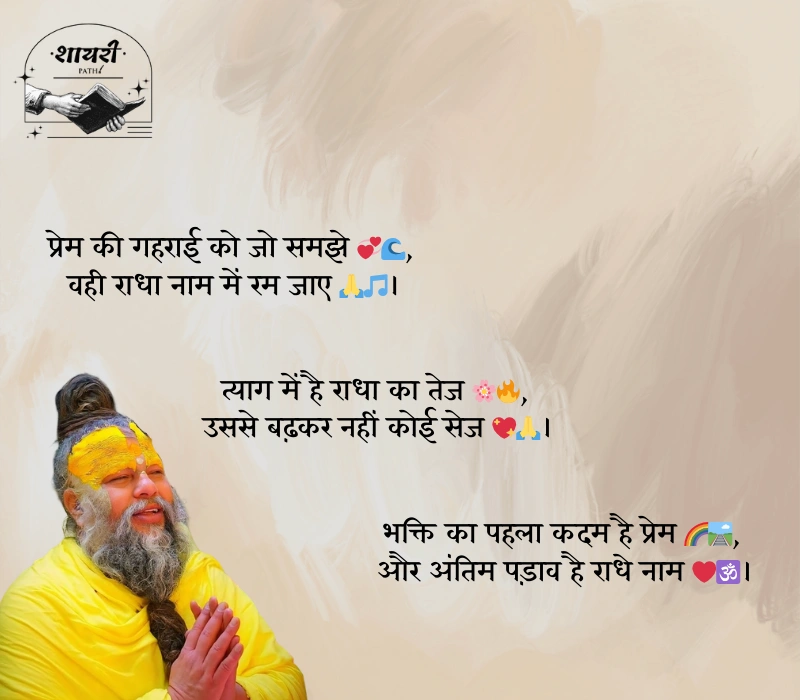 शायरी
PATH
प्रेम की गहराई को जो समझे 💞🌊,
वही राधा नाम में रम जाए 🙏🎵।
त्याग में है राधा का तेज 🌸🔥,
उससे बढ़कर नहीं कोई सेज 💖🙏।
भक्ति का पहला कदम है प्रेम 🌈🛤️,
और अंतिम पड़ाव है राधे नाम ❤️🕉️।